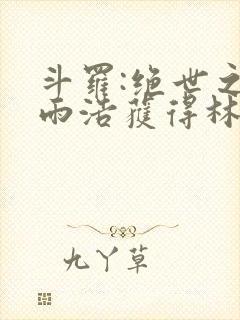 斗羅:絕世之
雨浩獲得林
九丫草